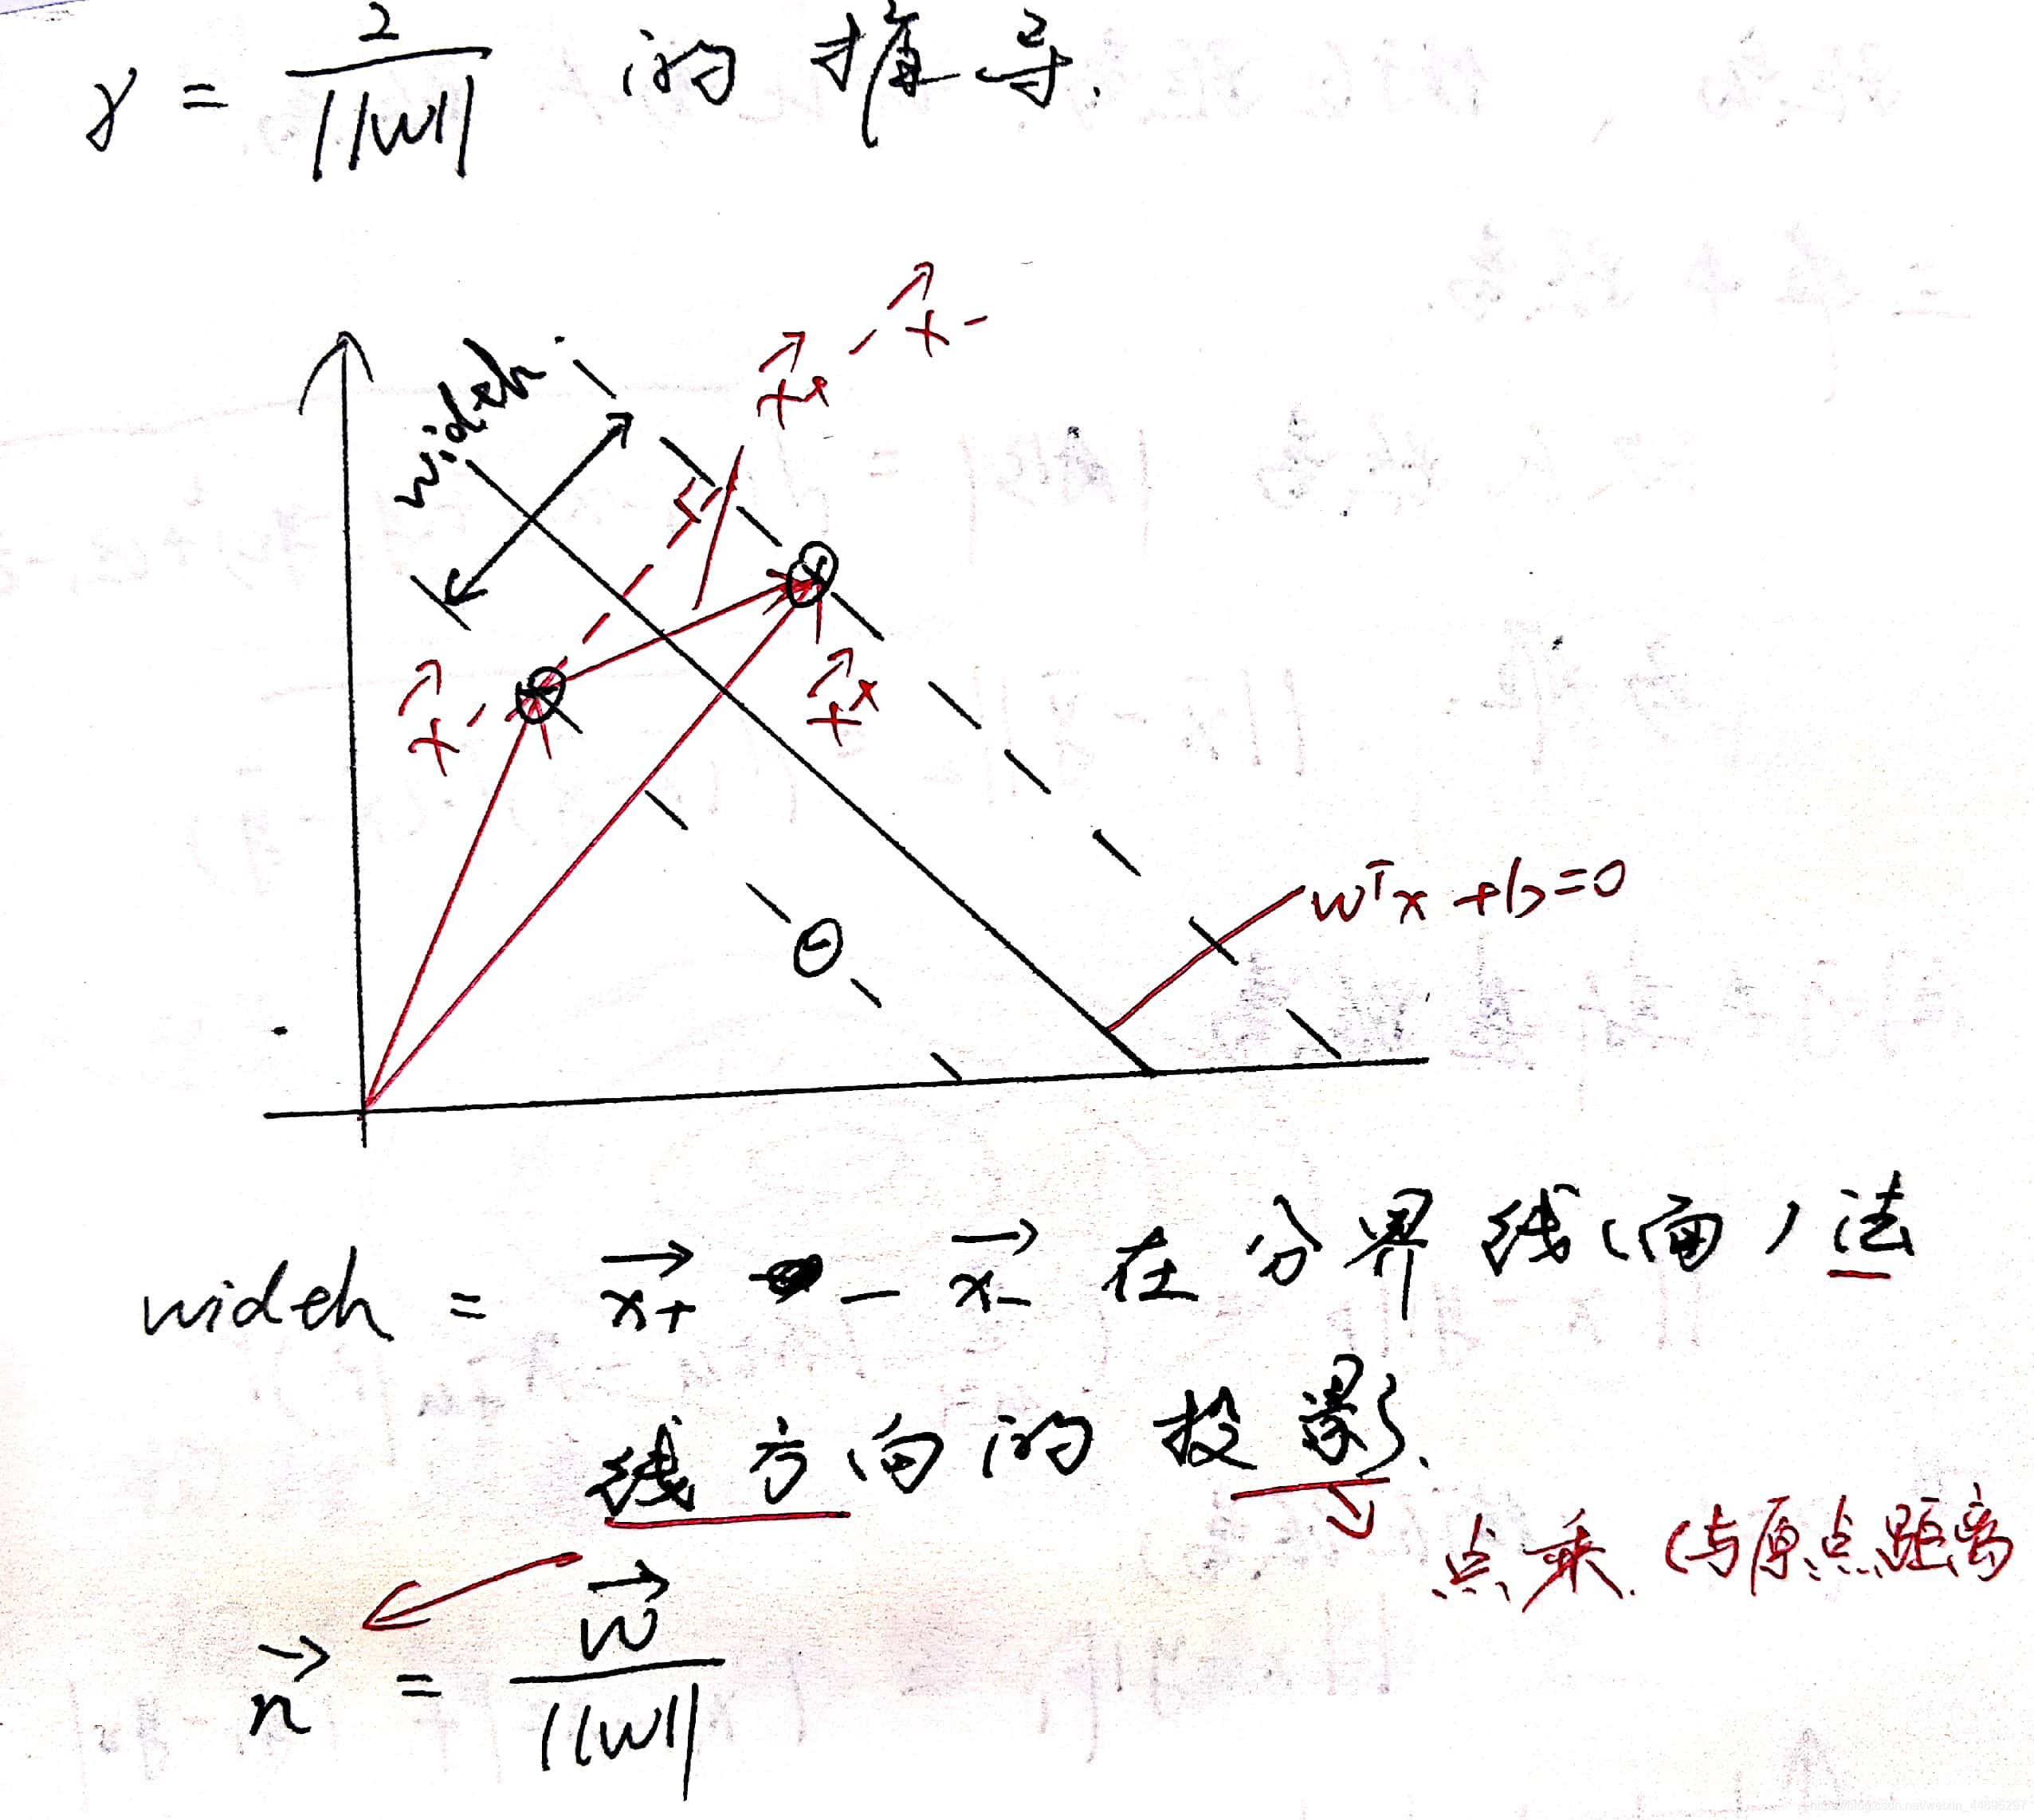 γ = 2 / ||w|| 的推导.
width
x⃗⁺ - x⃗⁻
x⃗⁻
x⃗⁺
wᵀx + b = 0
width = x⃗₊ - x⃗₋ 在分界线(面)法
线方向的投影.
点乘. (与原点距离
n⃗ = w⃗ / ||w||